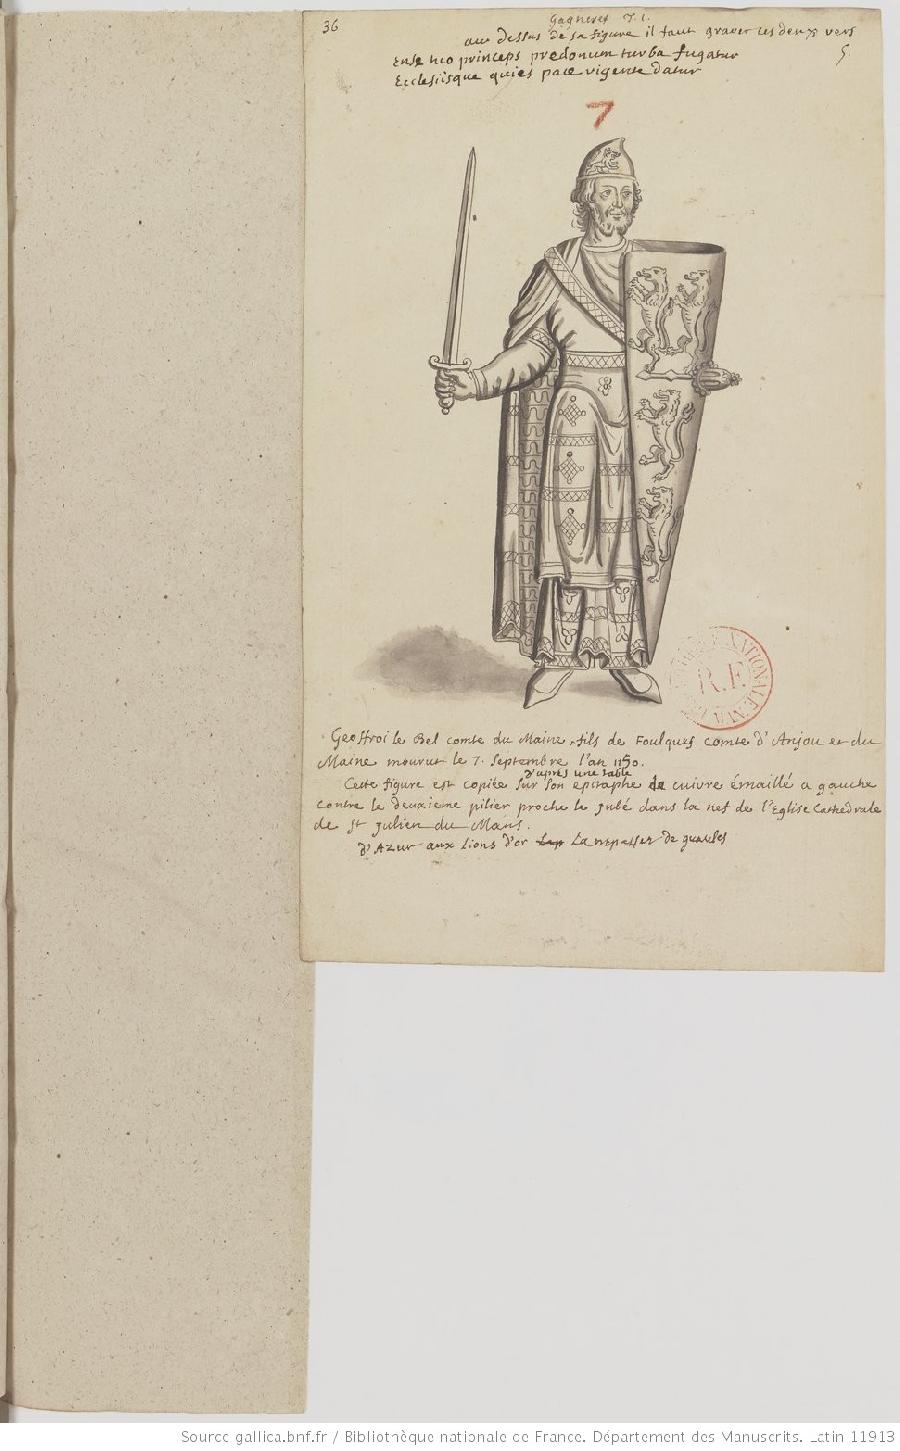 36
Gagneres T. 1.
au dessus de sa figure il faut graver ces deux vers
Ense tuo princeps predonum turba fugatur
Ecclesiisque quies pace vigente datur
5.
7
R.F.
Geoffroi le Bel comte du Maine, fils de Foulques comte d'Anjou et du
Maine mourut le 7. Septembre l'an 1150.
d'après une table
Cette figure est copiée sur son epitaphe de cuivre émaillé a gauche
contre le deuxieme pilier proche le jubé dans la nef de l'Eglise Cathedrale
de St Julien du Mans.
d'Azur aux Lions d'or La repasser de gueules
Source gallica.bnf.fr / Bibliothèque nationale de France. Département des Manuscrits. Latin 11913